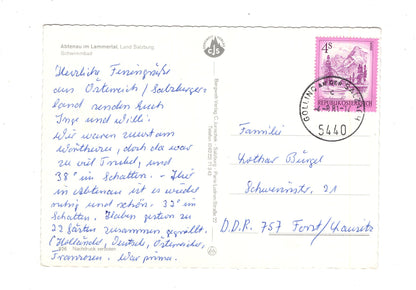 Abtenau im Lammertal, Land Salzburg
Schwimmbad
Herzliche Feriengrüße
aus Österreich / Salzburger-
land senden Euch
Inge und Willi.
Wir waren zuerst am
Wörthersee, doch da war
zu viel Trubel, und
38° im Schatten. - Hier
in Abtenau ist es wieder
ruhig und schön. 32° im
Schatten. Haben gestern zu
22 Gästen zusammen gegrillt.
(Holländer, Deutsche, Österreicher,
Franzosen. War prima.
Nachdruck verboten
CJS
4S
REPUBLIK ÖSTERREICH
GOLLING AN DER SALZACH
5440
Familie
Lothar Bürgel
Schwerinstr. 21
D.D.R. 757 Forst/Lausitz